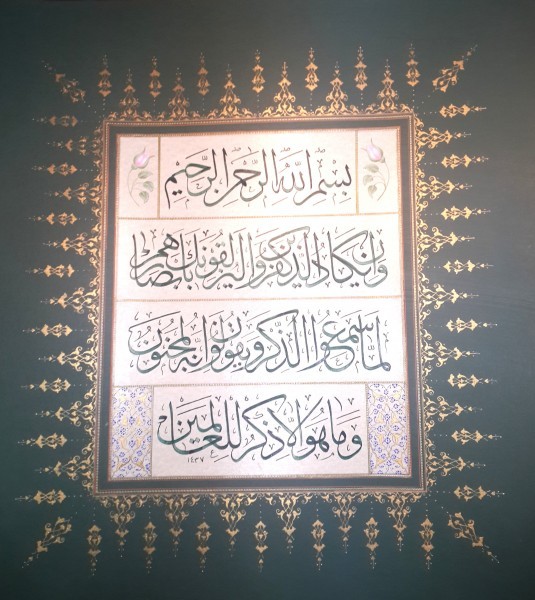 بِسْمِ اللهِ الرَّحْمٰنِ الرَّحِيمِ
وَإِنْ يَكَادُ الَّذِينَ كَفَرُوا لَيُزْلِقُونَكَ بِأَبْصَارِهِمْ
لَمَّا سَمِعُوا الذِّكْرَ وَيَقُولُونَ إِنَّهُ لَمَجْنُونٌ
وَمَا هُوَ إِلَّا ذِكْرٌ لِلْعَالَمِينَ
١٤٣٧